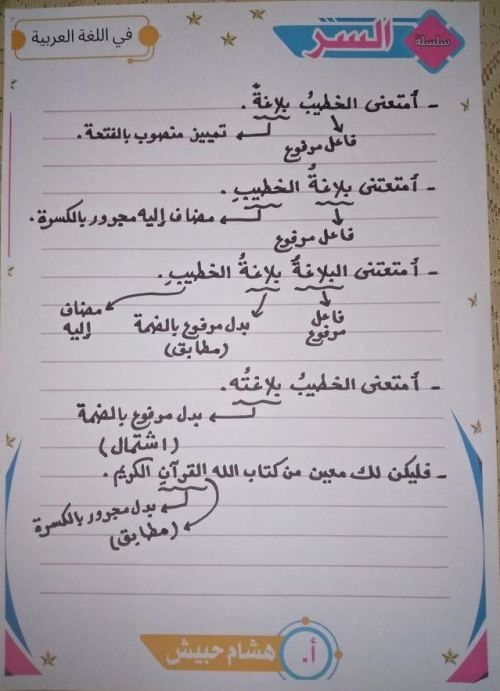 سلسلة السر
في اللغة العربية
- أمتعنى الخطيبُ بلاغةً .
فاعل مرفوع
تمييز منصوب بالفتحة.
- أمتعتنى بلاغةُ الخطيبِ .
فاعل مرفوع
مضاف إليه مجرور بالكسرة.
- أمتعتنى البلاغةُ بلاغةُ الخطيبِ.
فاعل مرفوع
بدل مرفوع بالضمة (مطابق)
مضاف إليه
- أمتعنى الخطيبُ بلاغتُه.
بدل مرفوع بالضمة
(اشتمال)
- فليكن لك معين من كتاب الله القرآنِ الكريم .
بدل مجرور بالكسرة
(مطابق)
أ. هشام حبيش